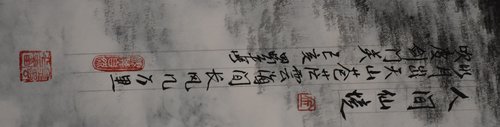 人间仙境
明月出天山苍茫云海间长风几万里
吹度剑门关己亥